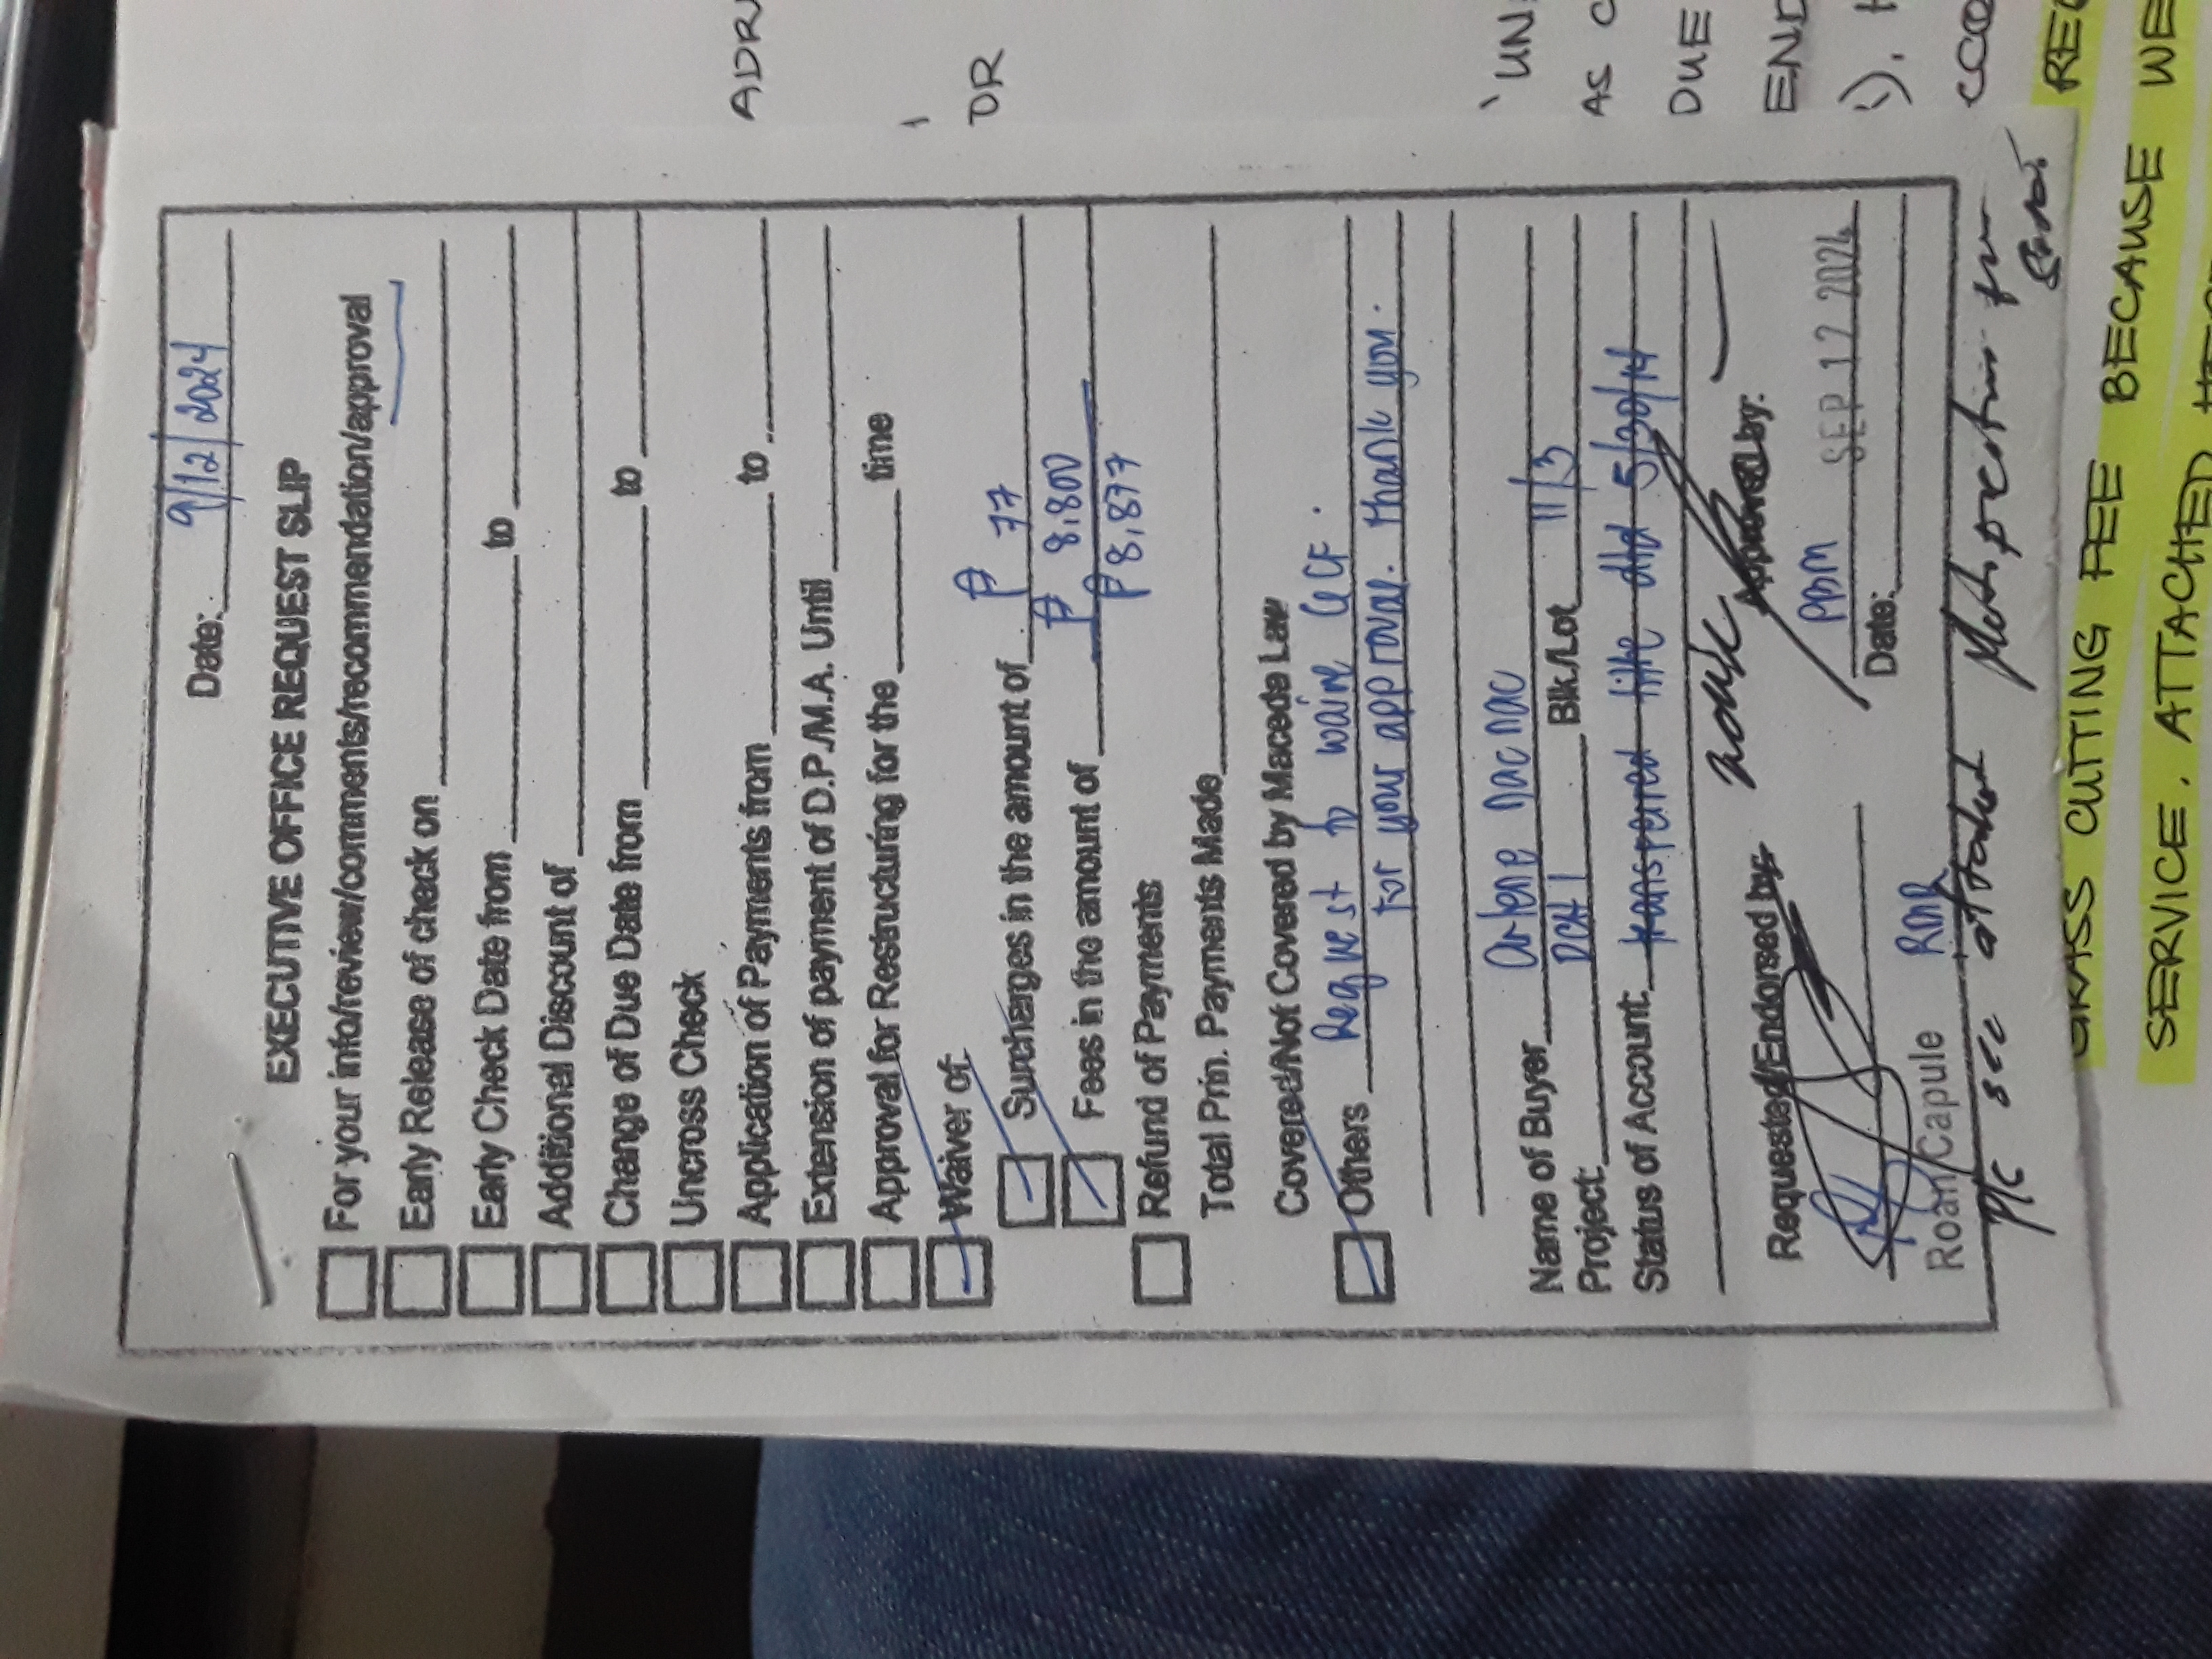 Date: 9/12/2024
EXECUTIVE OFFICE REQUEST SLIP
For your info/review/comments/recommendation/approval
Early Release of check on
Early Check Date from to
Additional Discount of
Change of Due Date from to
Uncross Check
Application of Payments from to
Extension of payment of D.P./M.A. Until
Approval for Restructuring for the time
Waiver of:
Surcharges in the amount of ₱ 77
Fees in the amount of ₱ 8,800
₱8,877
Refund of Payments
Total Prin. Payments Made
Covered/Not Covered by Maceda Law
Others Request to waive GCF.
For your approval. Thank you.
Name of Buyer Arlene Nacnac
Project: DCH 1 Blk./Lot 11/3
Status of Account: transferred title dtd 5/30/14
Requested/Endorsed by: Approved by:
PBM SEP 12 2024
Date:
Roan Capule RMR
Pls see attached
ADRI
OR
UN
AS C
DUE
END
CCO
REQ
GRASS CUTTING FEE BECAUSE WE
SERVICE. ATTACHED